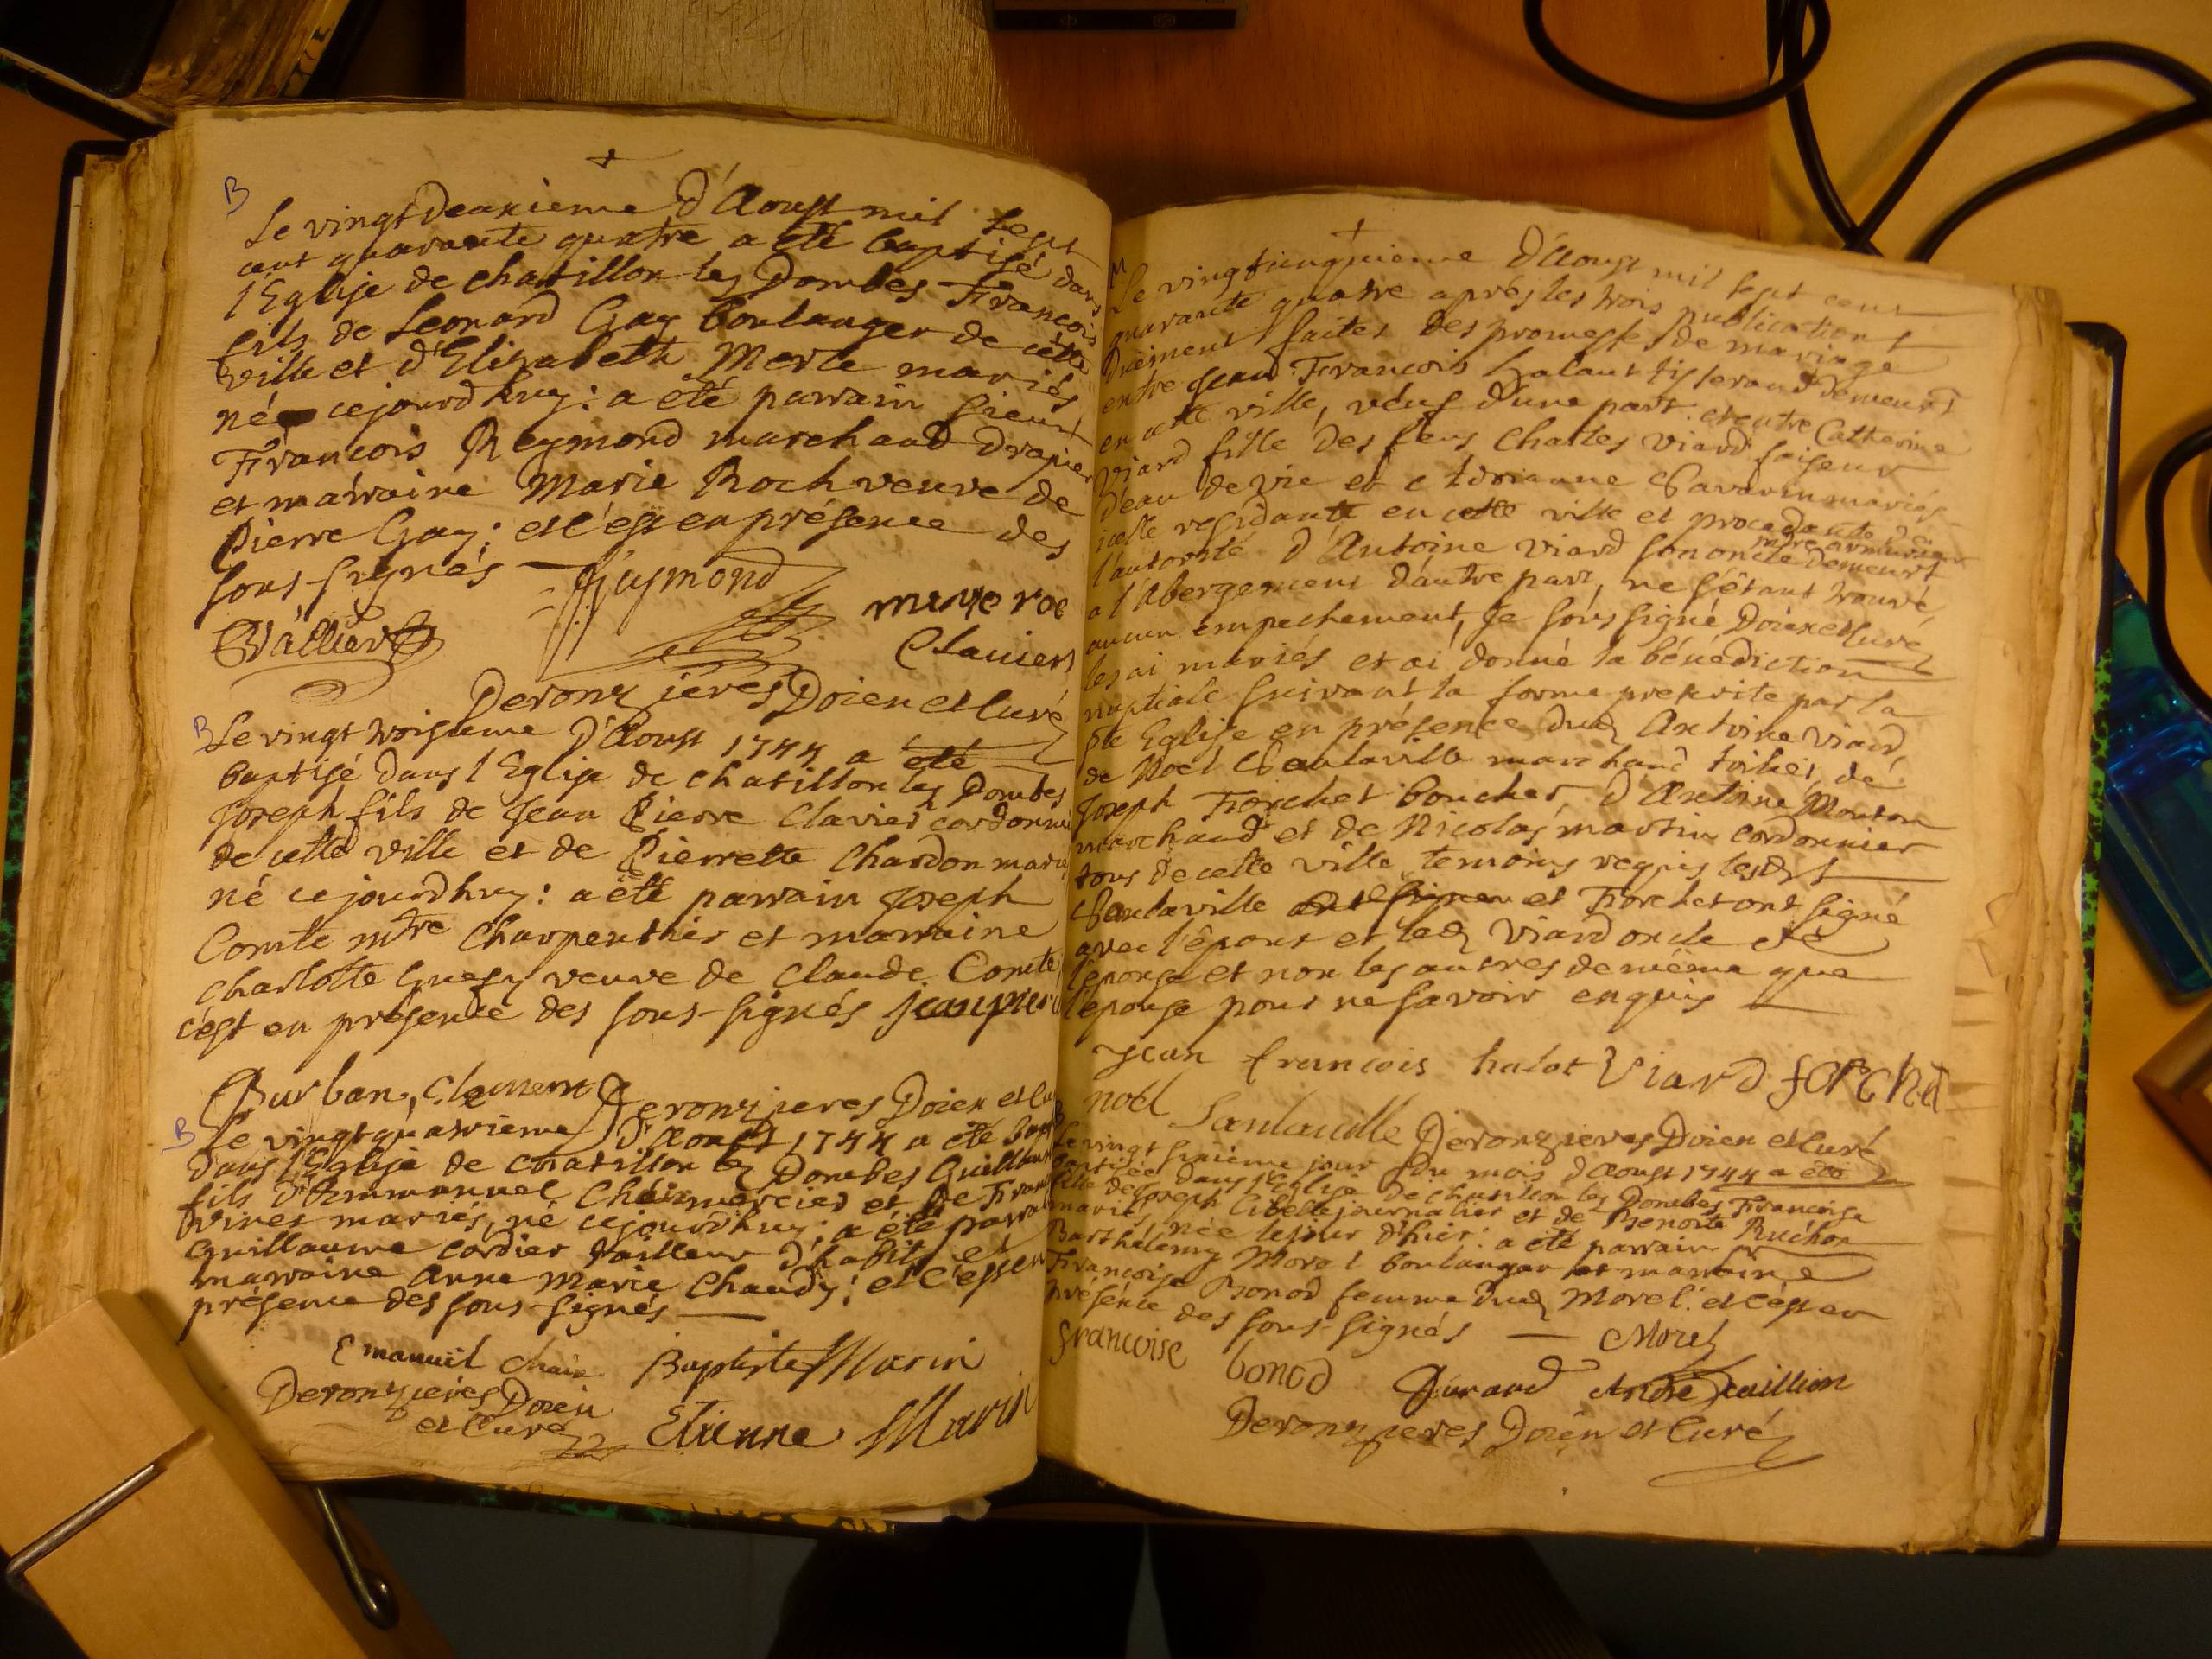 B
Le vingt deuxieme d'Aoust mil sept
cent quarante quatre a été baptisé dans
l'Eglise de chatillon les Dombes François
fils de Leonard Gay boulanger de cette
ville et d'Elizabeth Merle mariés
né cejourdhuy: a été parrain sieur
François Reymond marchand Drapier
et marraine Marie Roch veuve de
Pierre Gay: et c'est en présence des
sous-signés — Reymond
Vallier
Clauier
Deronzieres Doien et Curé
B Le vingt troisieme d'Aoust 1744 a été
baptisé dans l'Eglise de chatillon les Dombes
Joseph fils de Jean Pierre Clavier cordonni
de cette ville et de Pierrette Chardon marié
né cejourdhuy: a été parrain Joseph
Comte mtre Charpenthier et marraine
Charlotte veuve de Claude Comte
c'est en présence des sous-signés jean pier
Burban, Clement Deronzieres Doien et Cu
B Le vingt quatrieme d'Aoust 1744 a été bap
dans l'Eglise de chatillon les Dombes Guillaum
fils d'Emmanuel Chaix mercier et de Fran
Vivet mariés, né cejourdhuy: a été parra
Guillaume Cordier tailleur d'habits et
marraine Anne Marie Chaudy: et c'est en
présence des sous-signés —
Emanuil chaix Baptiste Marin
Deronzieres Doien
et Curé Etienne Marin
M
Le vingtcinquieme d'Aoust mil sept cent
quarante quatre après les trois publications
duëment faites des promesses de mariage
entre Jean François halaut tisserand demeurt
en cette ville, veuf d'une part. et entre Catherine
Viard fille des feus Charles Viard faiseur
d'eau de vie et Adrianne Savarin mariés
icelle residante en cette ville et procedante de
l'autorité d'Antoine Viard son oncle mtre armurier demeurt
a l'Abergement d'autre part, ne s'étant trouvé
aucun empechement, Je sous signé Doien et Curé
les ai mariés et ai donné la bénédiction
nuptiale suivant la forme prescrite par la
Ste Eglise en présence dud Antoine Viard,
de Noël Santaville marchand toilier, de
Joseph Forchet boucher, d'Antoine Mouton
marchand et de Nicolas martin cordonnier
tous de cette ville temoins requis lesds
Santaville ont signé et Forchet ont signé
avec l'époux et led Viard oncle de
l'épouse et non les autres de même que
l'épouse pour ne savoir enquis
Jean francois halot Viard forchet
noel Santauille Deronzieres Doien et Curé
Le vingt sixieme jour du mois d'Aoust 1744 a été
baptisée dans l'Eglise de chatillon les Dombes Françoise
fille de Joseph Libelle journalier et de Benoite Ruchon
mariés, née le jour d'hier: a été parrain
Barthelemy Morel boulanger et marraine
Françoise Bonod femme dud Morel: et c'est en
présence des sous-signés — Morel
francoise bonod Durand André Paillion
Deronzieres Doien et Curé